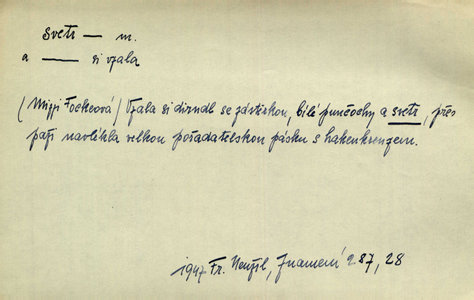 svetr — m.
a — si vzala
(Mizzi Fockeová) Vzala si dirndl se zástěrkou, bílé punčochy a svetr, přes
paži navlékla velkou pořadatelskou pásku s hakenkreuzem.
1947 Fr. Neužil, Znamení 287, 28